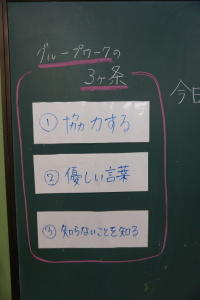 グループワークの
3ヶ条
① 協力する
② 優しい言葉
③ 知らないことを知る
今日